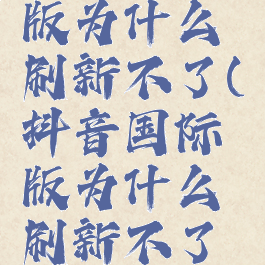 版为什么
刷新不了(
抖音国际
版为什么
刷新不了